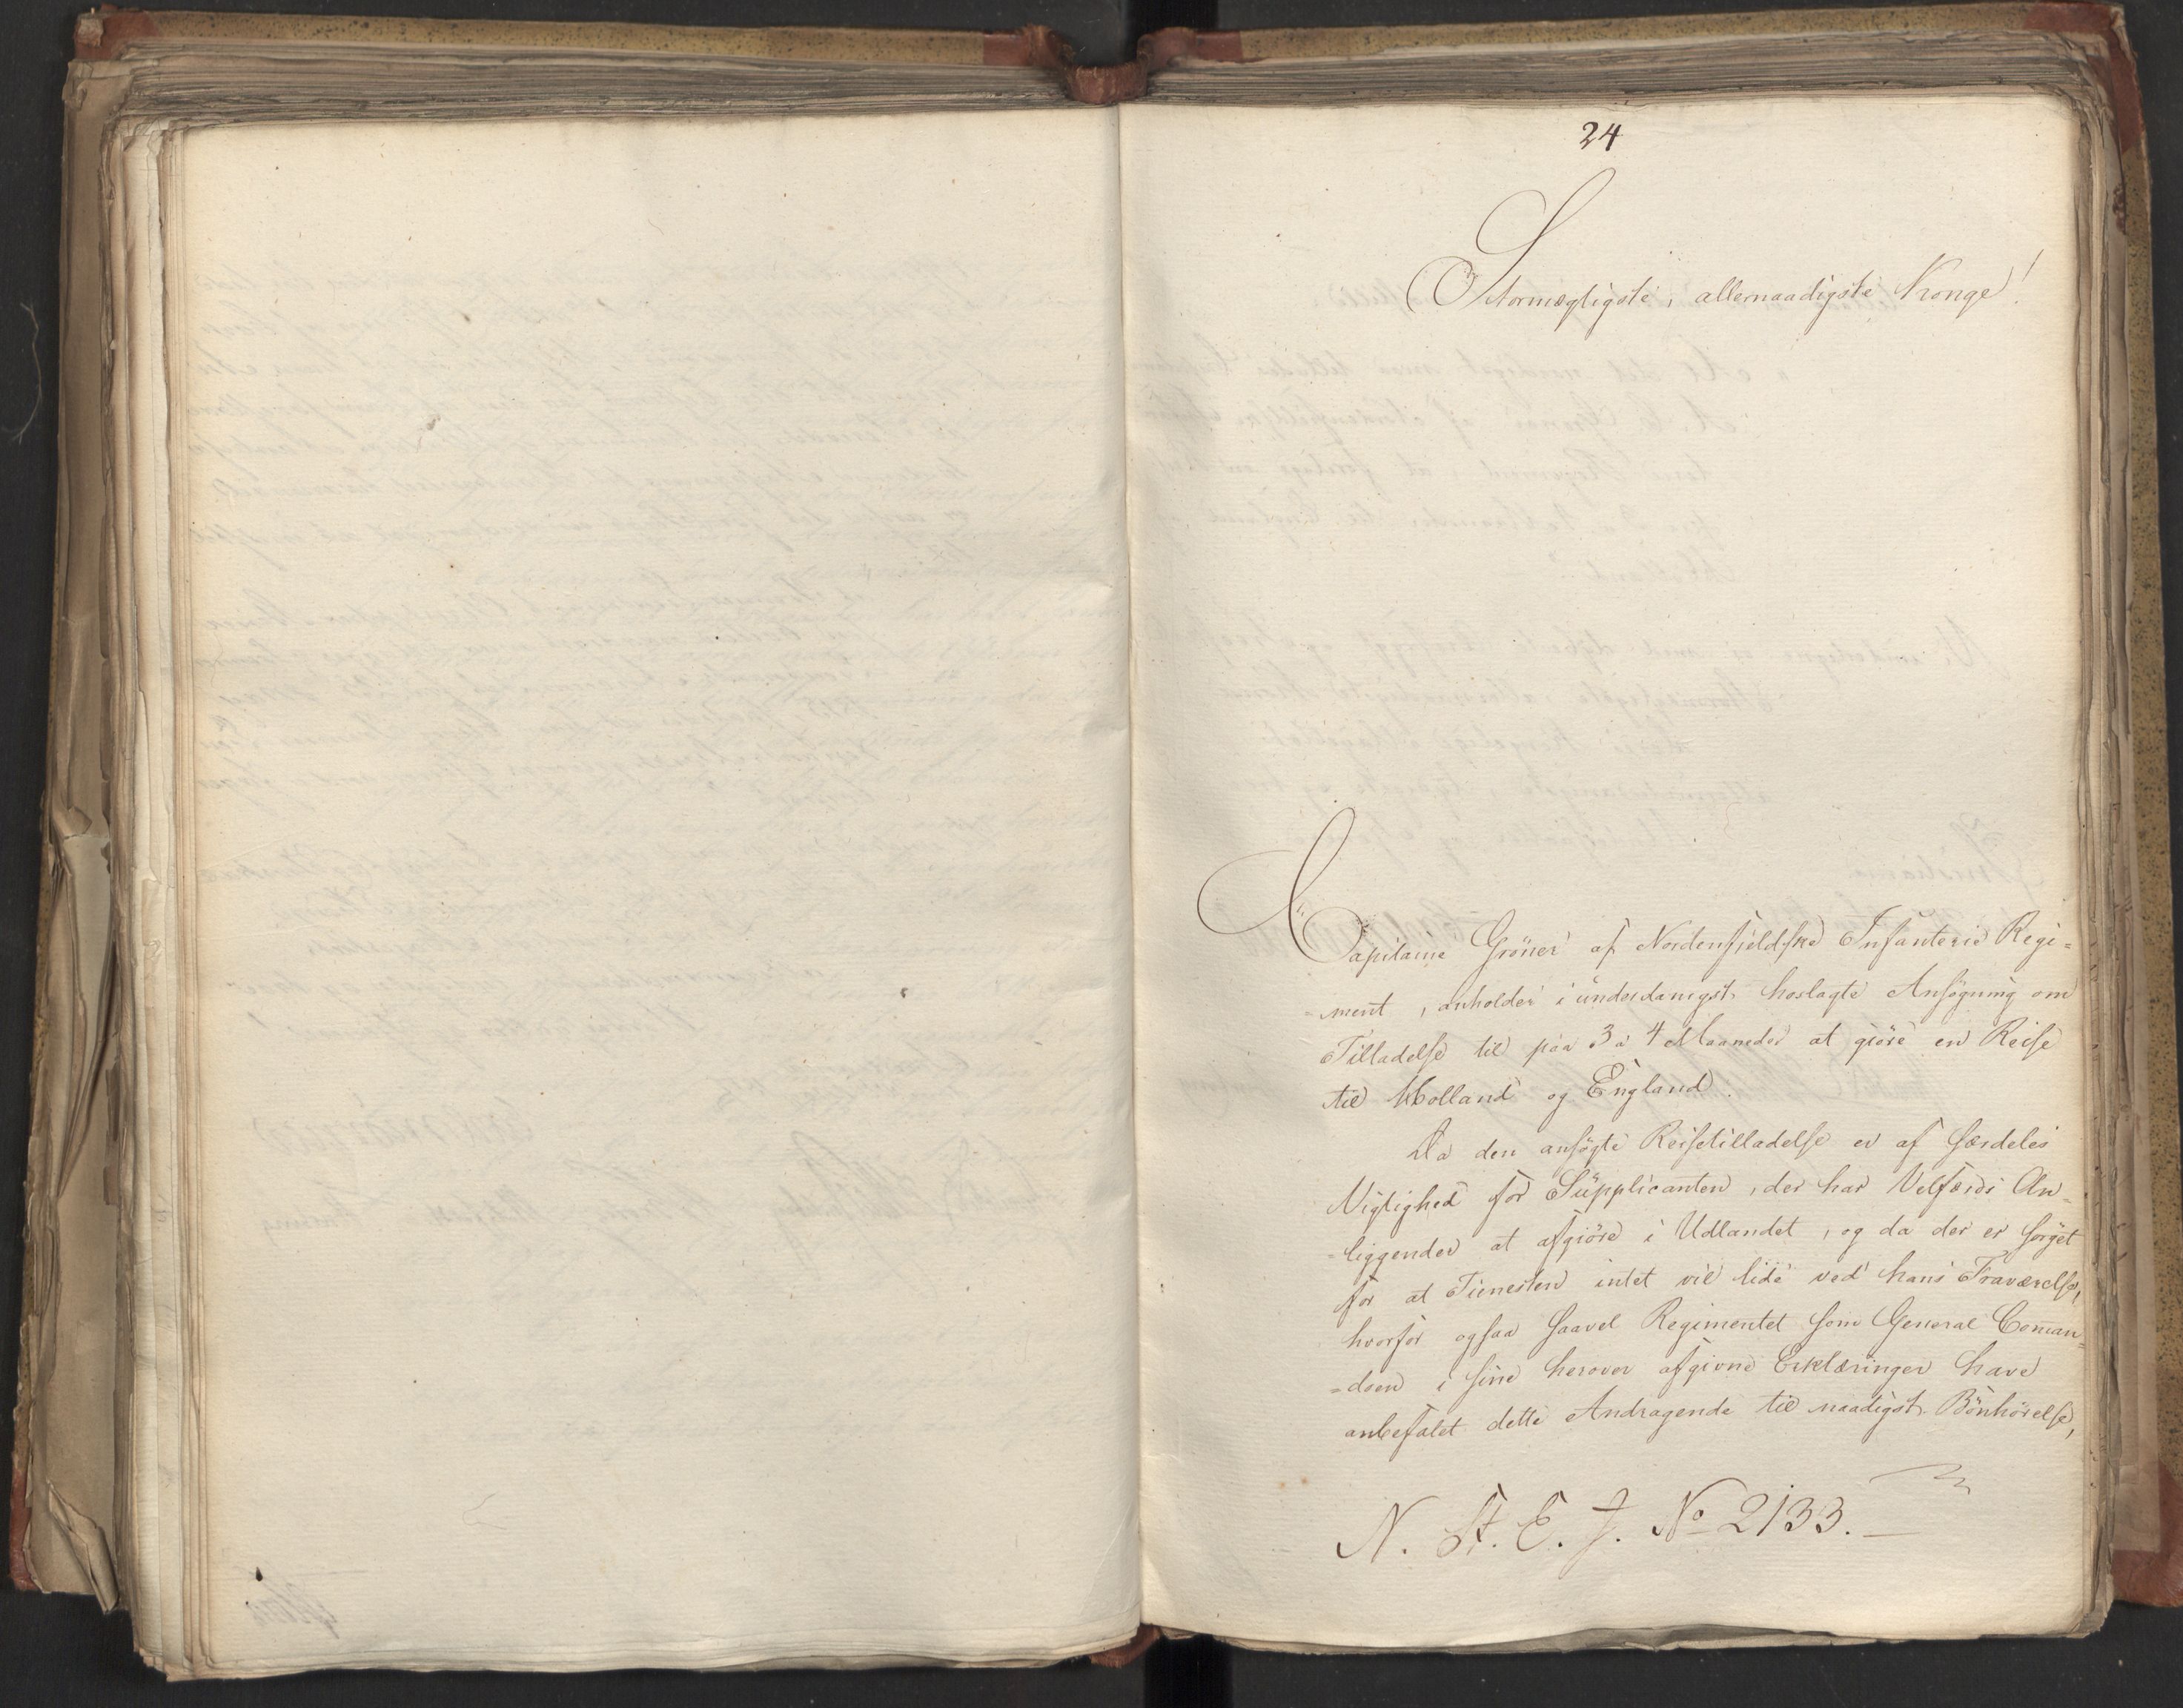 24
Stormægtigste, allernaadigste Konge!
Capitaine Gröner af Nordenfjeldske Infanterie Regi=
=ment, anholder i underdanigst hoslagte Ansögning om
Tilladelse til paa 3 a 4 Maaneder at giöre en Reise
til Holland og England.
Da den ansögte Reisetilladelse er af særdeles
Vigtighed for Supplicanten, der har Velfærds An=
=liggender at afgiöre i Udlandet, og da der er sörget
for at Tienesten intet vil lide ved hans Fraværelse,
hvorfor ogsaa saavel Regimentet som General Coman=
=doen i sine herover afgivne Erklæringer have
anbefalet dette Andragende til naadigst Bönhörelse,
N. St. E. J. No 2133.